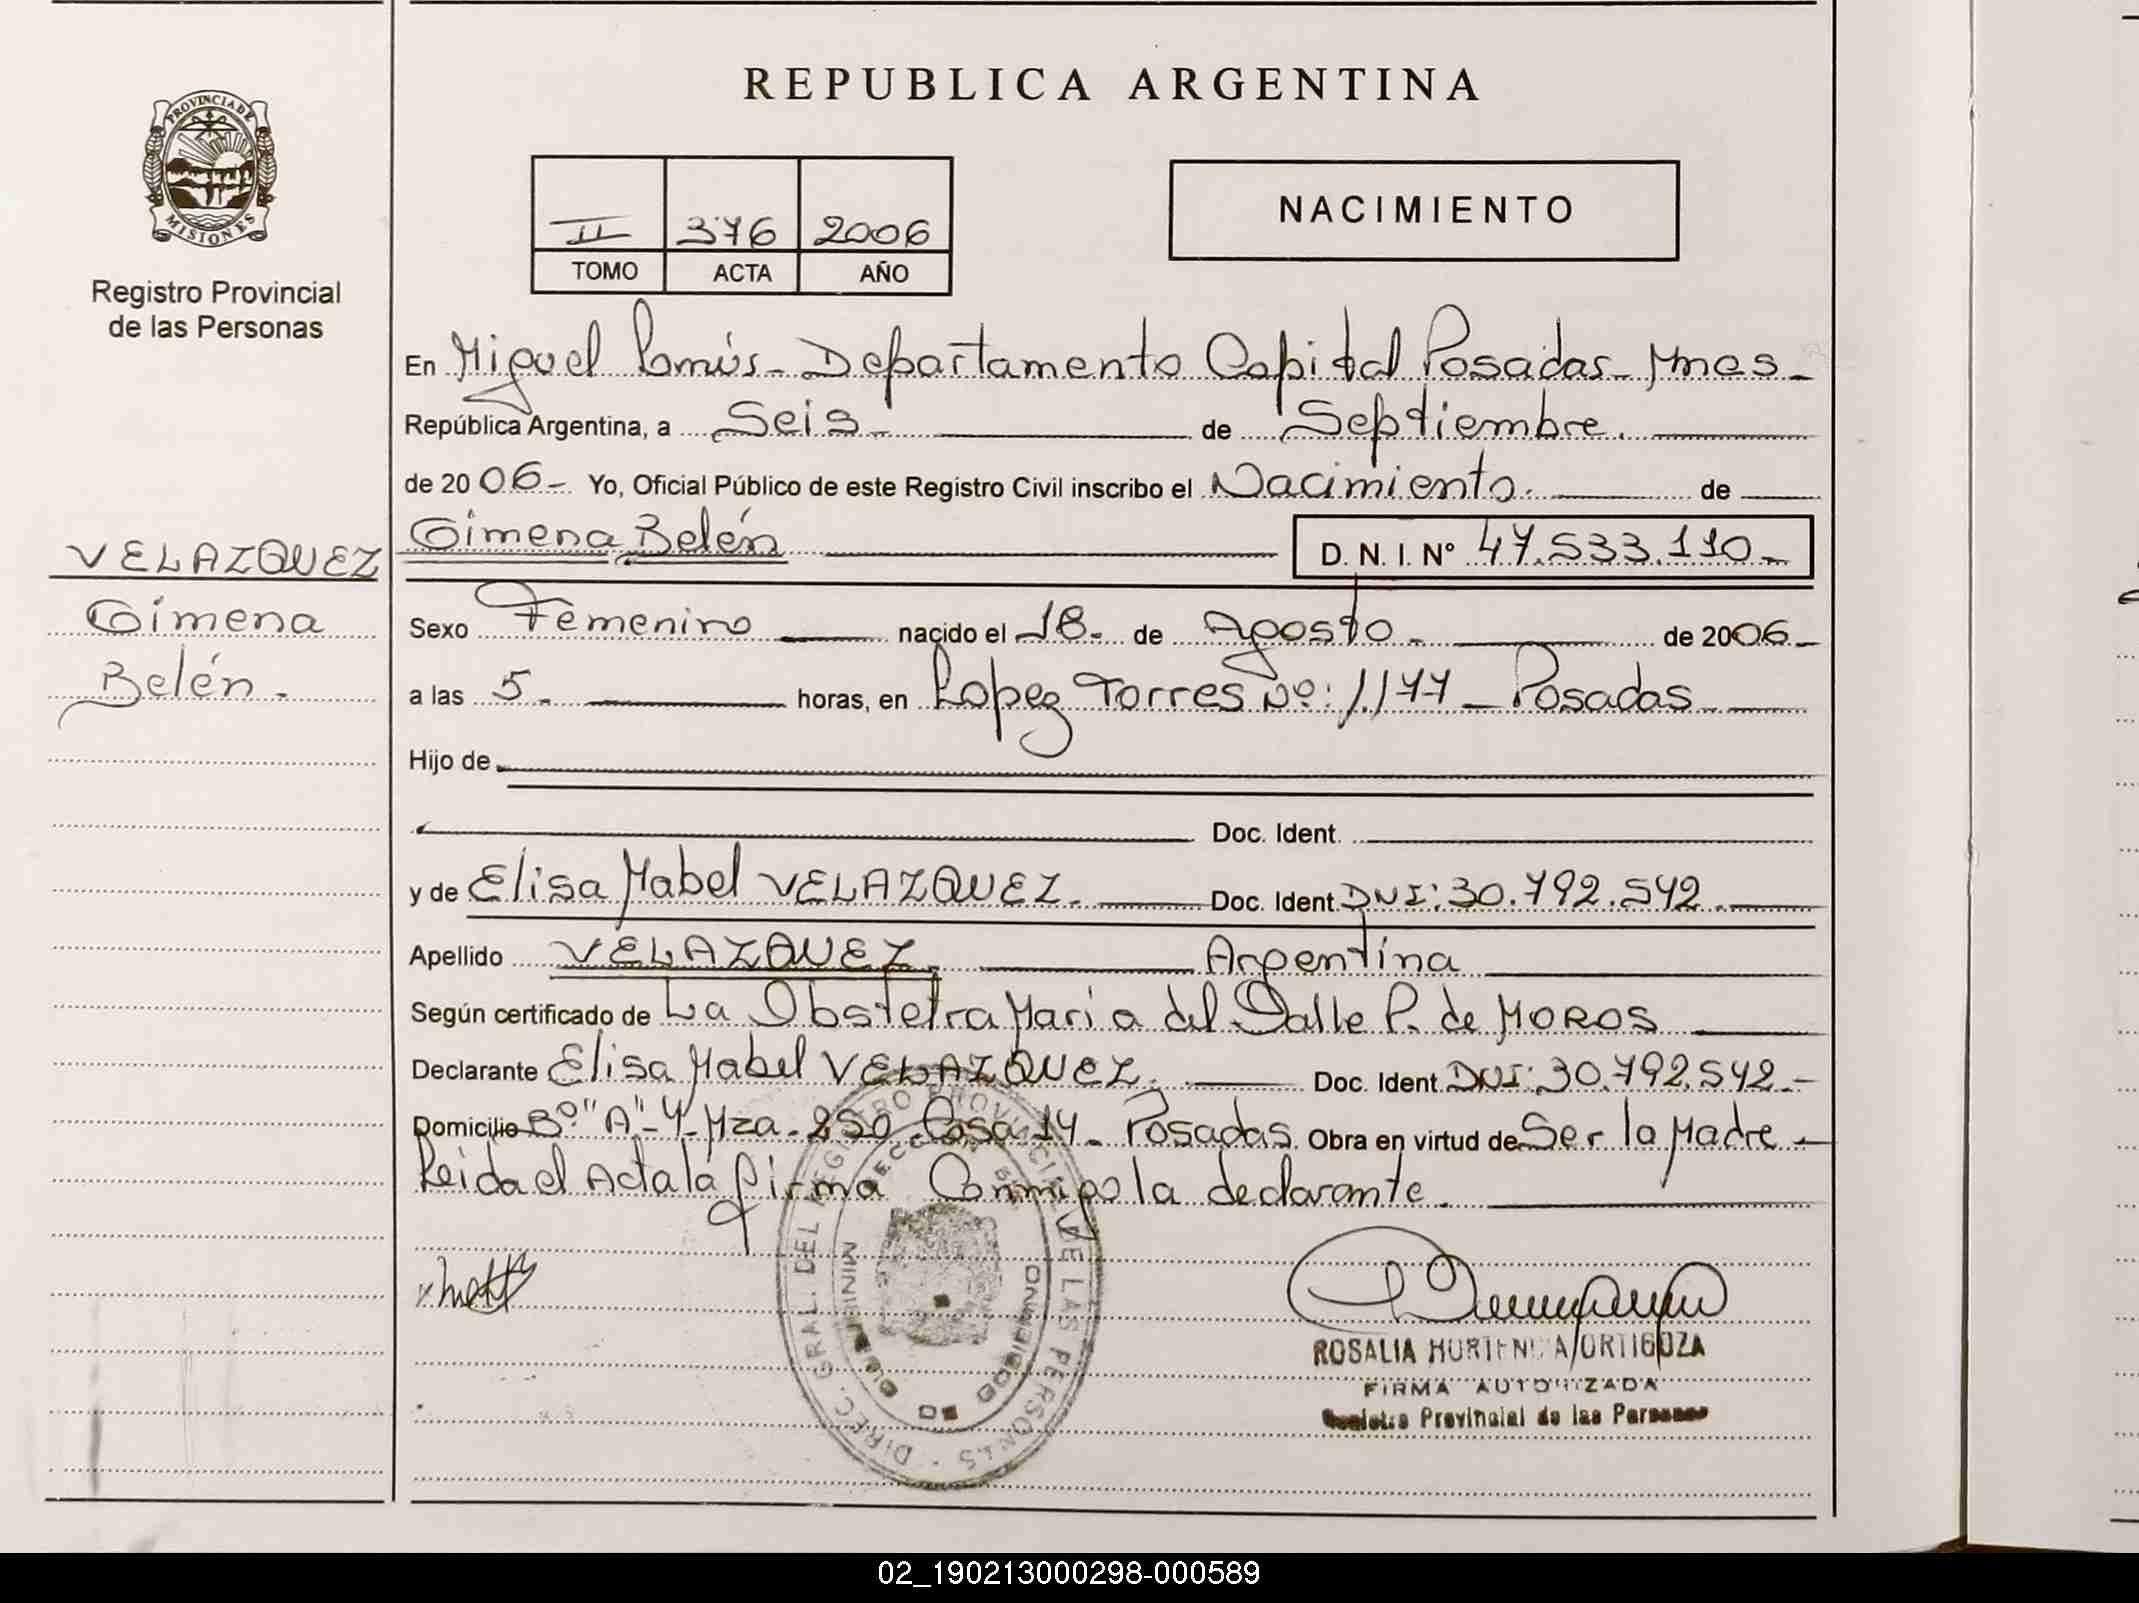 REPUBLICA ARGENTINA
PROVINCIA DE
MISIONES
Registro Provincial
de las Personas
II 376 2006
TOMO ACTA AÑO
NACIMIENTO
En Miguel Lanús - Departamento Capital Posadas - Mnes -
República Argentina, a Seis - de Septiembre.
de 2006 - Yo, Oficial Público de este Registro Civil inscribo el Nacimiento. de
Gimena Belén D. N. I. N° 47.533.110 -
VELAZQUEZ
Gimena
Belén -
Sexo Femenino nacido el 18 - de Agosto - de 2006 -
a las 5 - horas, en Lopez Torres Nº: 1177 - Posadas
Hijo de
Doc. Ident.
y de Elisa Mabel VELAZQUEZ. Doc. Ident. DNI: 30.792.542
Apellido VELAZQUEZ. Argentina
Según certificado de La Obstetra Maria del Valle P. de MOROS
Declarante Elisa Mabel VELAZQUEZ. Doc. Ident. DNI: 30.792.542 -
Domicilio Bº "A"-4- Mza - 250 Casa 14 - Posadas. Obra en virtud de Ser la Madre -
Leida el Acta la firma Conmigo la declarante.
DIREC. GRAL. DEL REGISTRO PROVINCIAL DE LAS PERSONAS
ROSALIA HORTENCIA ORTIGOZA
FIRMA AUTORIZADA
Registro Provincial de las Personas
02_190213000298-000589